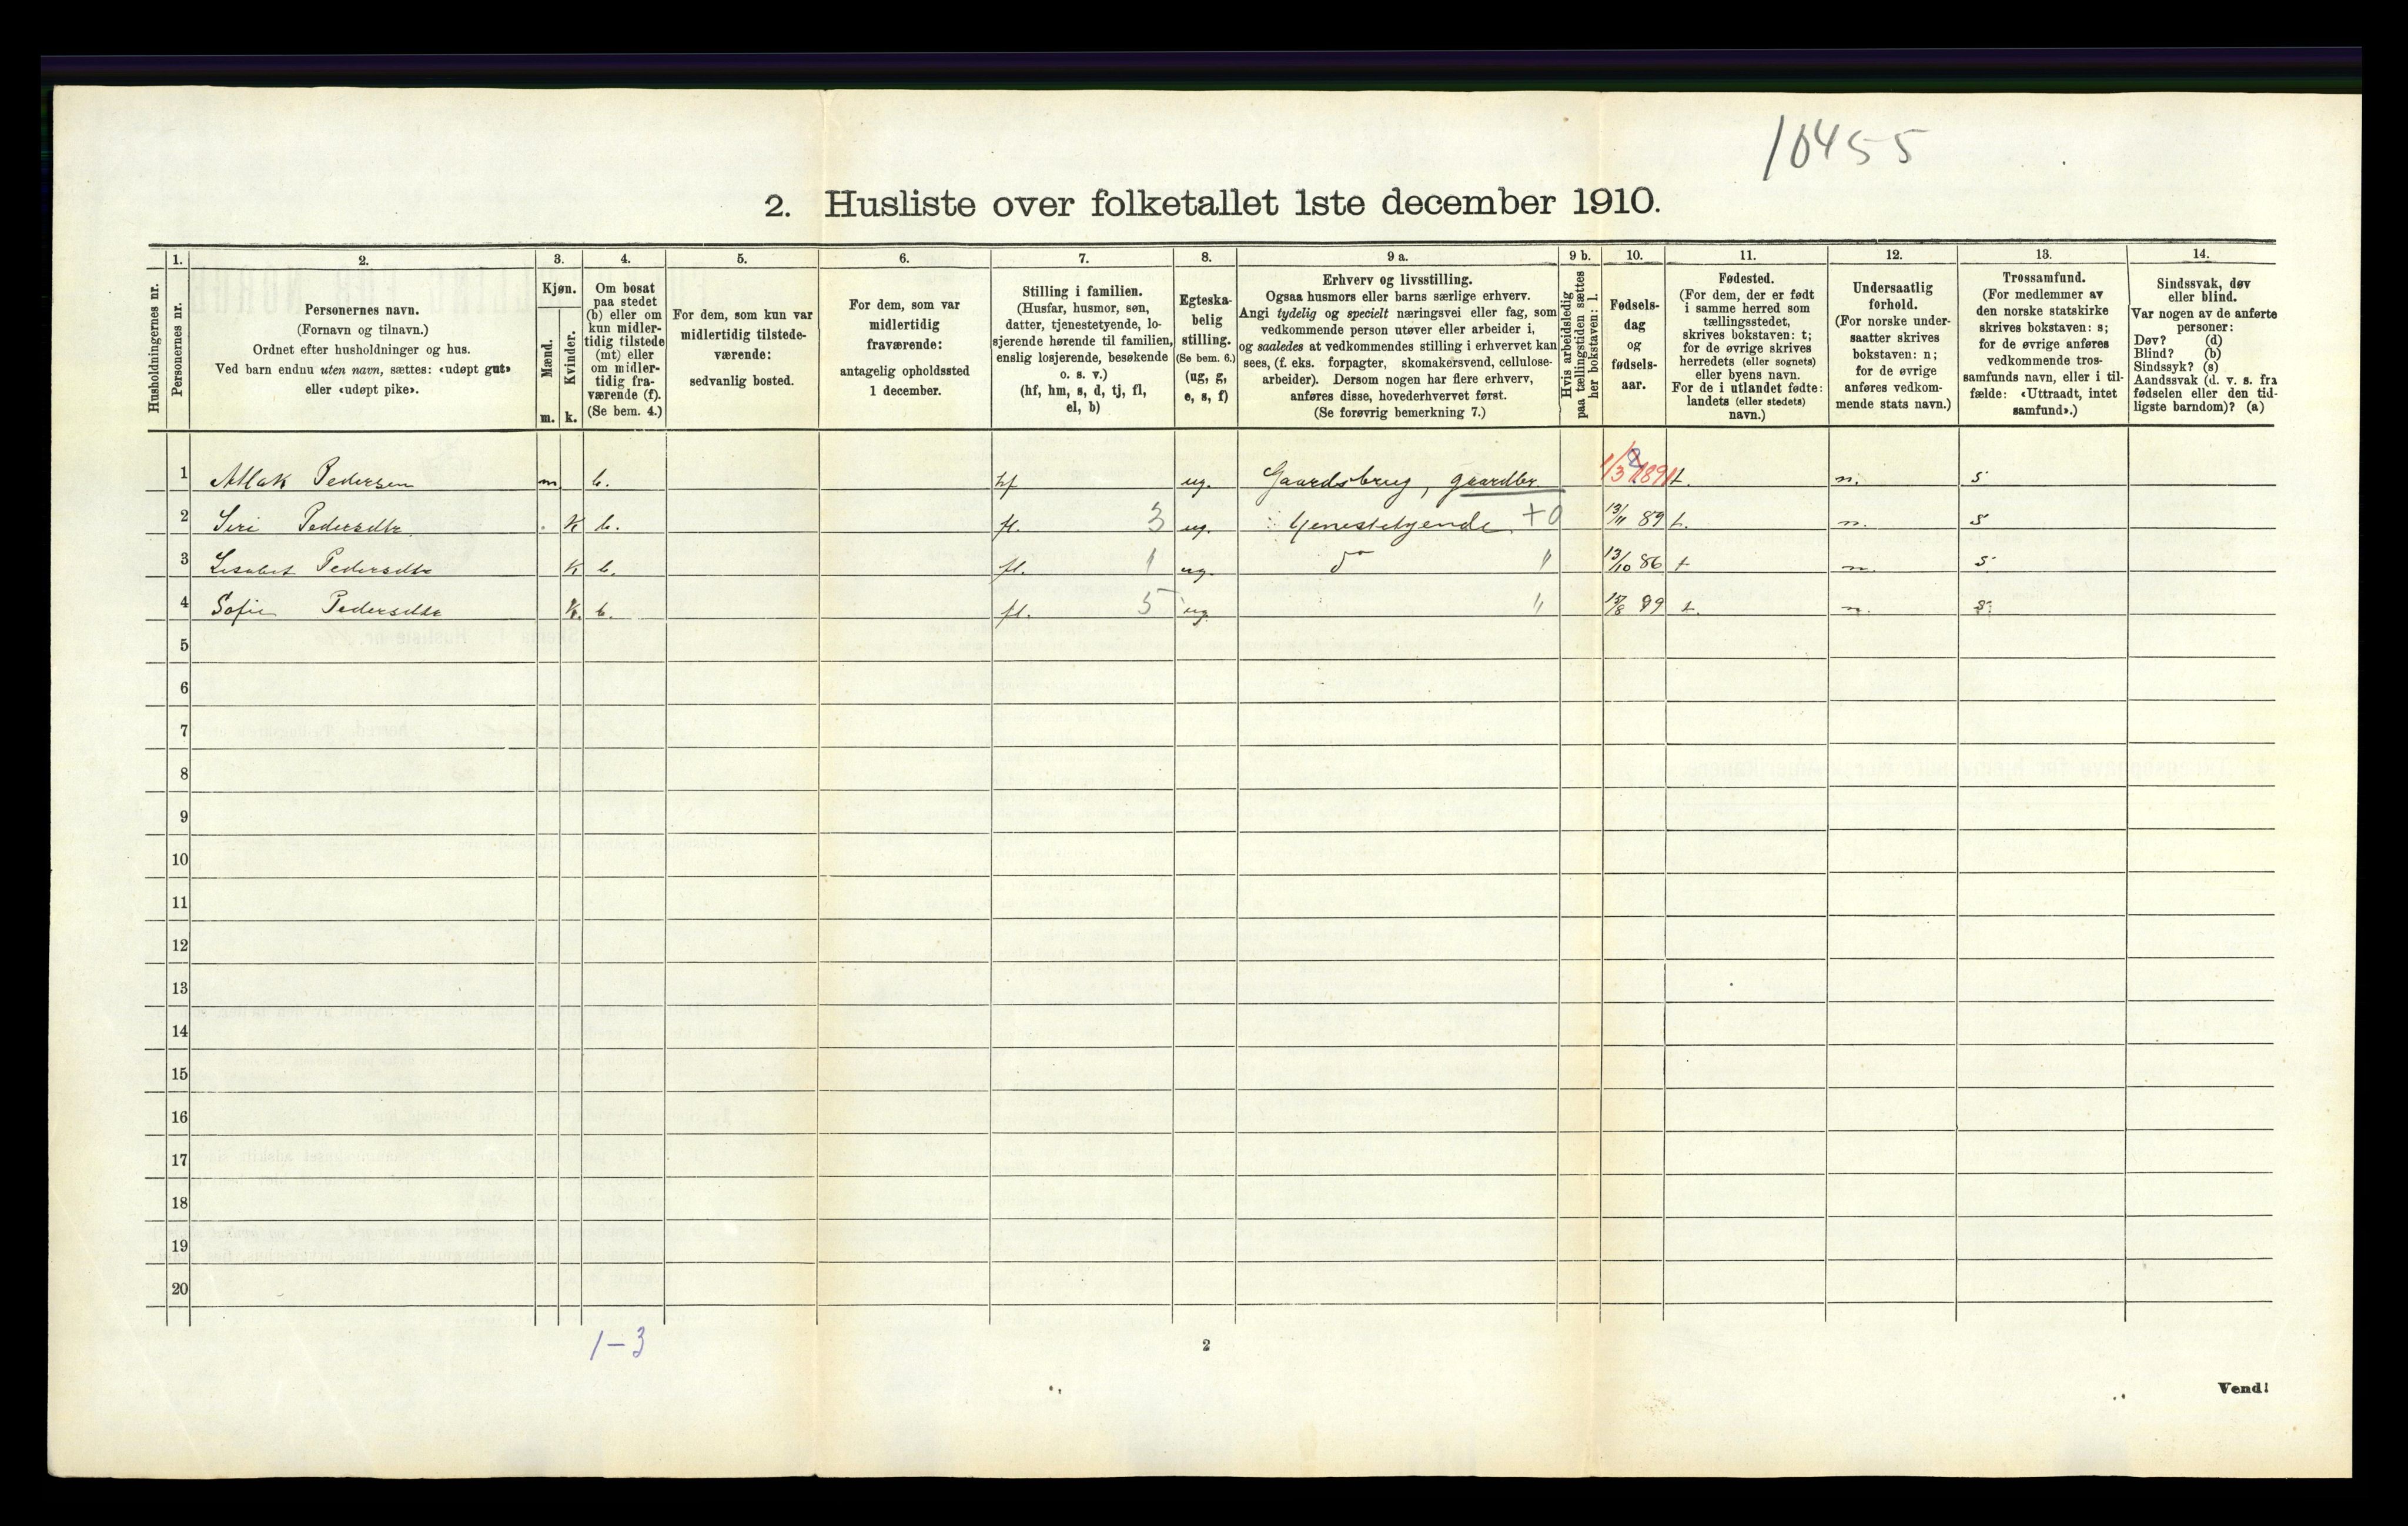 10455
2. Husliste over folketallet 1ste december 1910.
Husholdningernes nr.
1.
Personernes nr.
2.
Personernes navn.
(Fornavn og tilnavn.)
Ordnet efter husholdninger og hus.
Ved barn endnu uten navn, sættes: «udøpt gut»
eller «udøpt pike».
3.
Kjøn.
Mænd.
m.
Kvinder.
k.
4.
Om bosat
paa stedet
(b) eller om
kun midler-
tidig tilstede
(mt) eller
om midler-
tidig fra-
værende (f).
(Se bem. 4.)
5.
For dem, som kun var
midlertidig tilstede-
værende:
sedvanlig bosted.
6.
For dem, som var
midlertidig
fraværende:
antagelig opholdssted
1 december.
7.
Stilling i familien.
(Husfar, husmor, søn,
datter, tjenestetyende, lo-
sjerende hørende til familien,
enslig losjerende, besøkende
o. s. v.)
(hf, hm, s, d, tj, fl,
el, b)
8.
Egteska-
belig
stilling.
(Se bem. 6.)
(ug, g,
e, s, f)
9 a.
Erhverv og livsstilling.
Ogsaa husmors eller barns særlige erhverv.
Angi tydelig og specielt næringsvei eller fag, som
vedkommende person utøver eller arbeider i,
og saaledes at vedkommendes stilling i erhvervet kan
sees, (f. eks. forpagter, skomakersvend, cellulose-
arbeider). Dersom nogen har flere erhverv,
anføres disse, hovederhvervet først.
(Se forøvrig bemerkning 7.)
9 b.
Hvis arbeidsledig
paa tællingstiden sættes
her bokstaven: l.
10.
Fødsels-
dag
og
fødsels-
aar.
11.
Fødested.
(For dem, der er født
i samme herred som
tællingsstedet,
skrives bokstaven: t;
for de øvrige skrives
herredets (eller sognets)
eller byens navn.
For de i utlandet fødte:
landets (eller stedets)
navn.)
12.
Undersaatlig
forhold.
(For norske under-
saatter skrives
bokstaven: n;
for de øvrige
anføres vedkom-
mende stats navn.)
13.
Trossamfund.
(For medlemmer av
den norske statskirke
skrives bokstaven: s;
for de øvrige anføres
vedkommende tros-
samfunds navn, eller i til-
fælde: «Uttraadt, intet
samfund».)
14.
Sindssvak, døv
eller blind.
Var nogen av de anførte
personer:
Døv? (d)
Blind? (b)
Sindssyk? (s)
Aandssvak (d. v. s. fra
fødselen eller den tid-
ligste barndom)? (a)
1 Pedersen m b. hf ug. Gaardsbrug, gaardbr. t. n. s
2 Siri Pedersdtr. K b. fl. 3 ug. tjenestetyende +0 13/11 89 t. n. s
3 Lisabet Pedersdtr K b. fl. 1 ug. do " 13/10 86 t n. s
4 Sofie Pedersdtr K. b. fl. 5 ug. " t. n. s.
5
6
7
8
9
10
11
12
13
14
15
16
17
18
19
20
1-3
2
Vend!